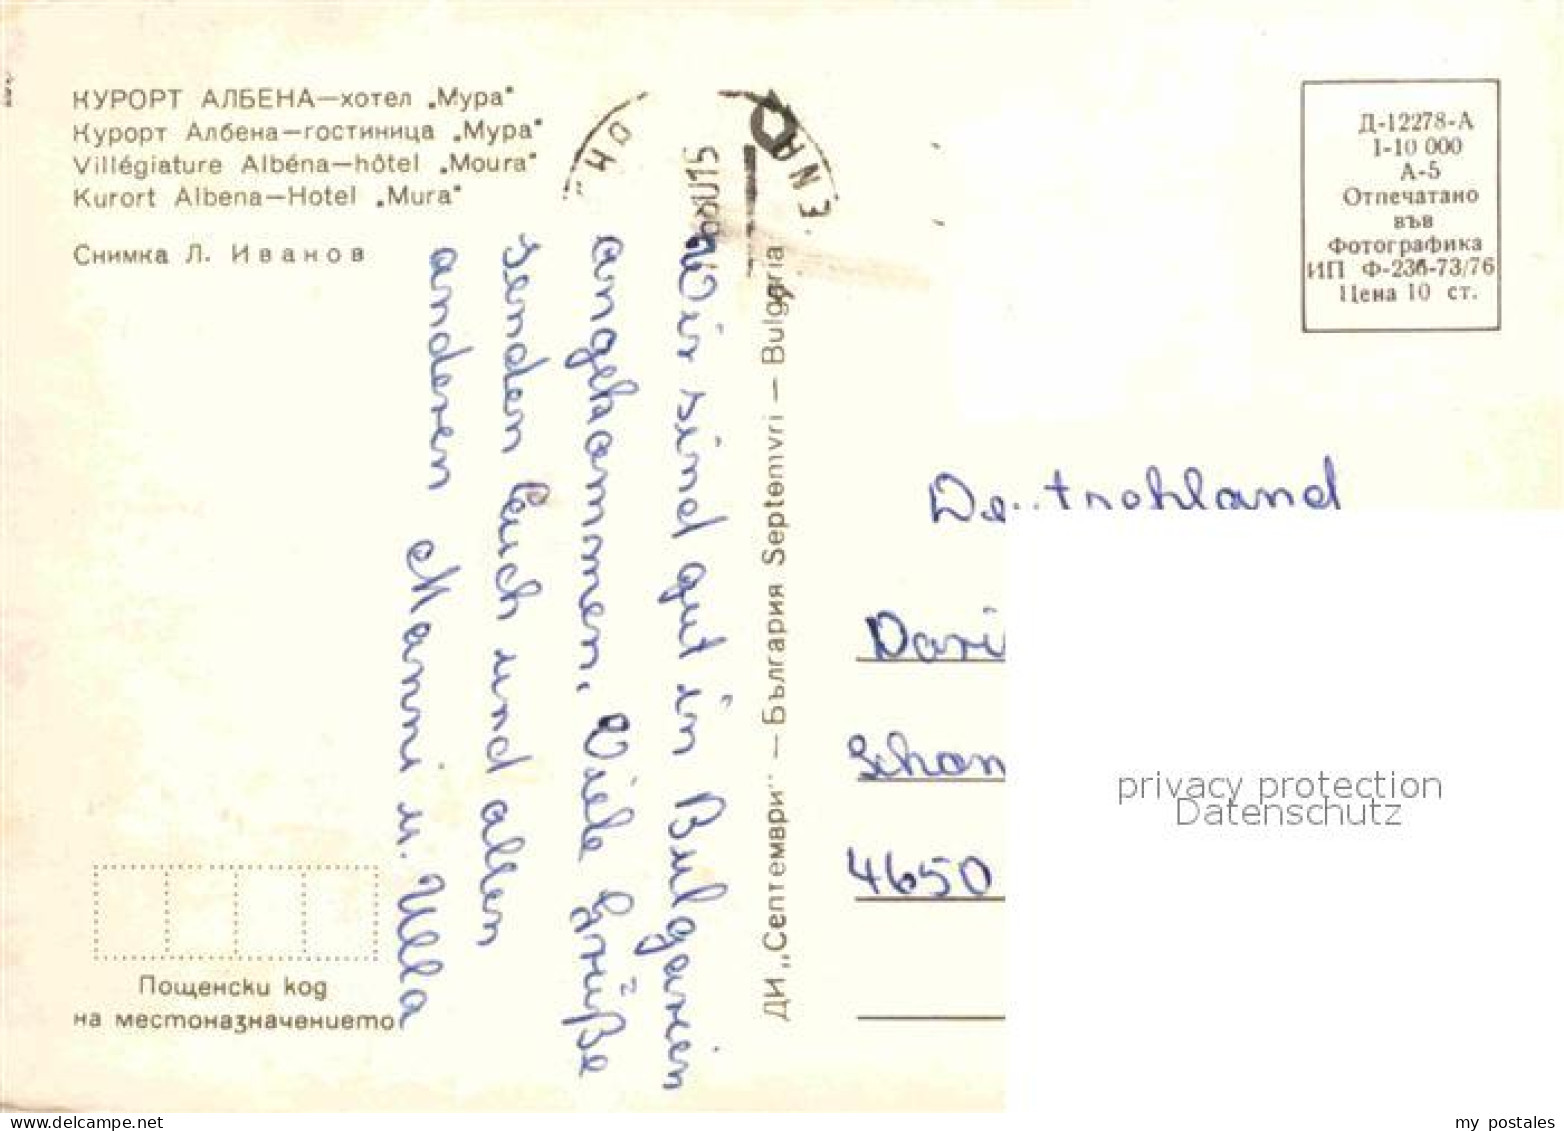 КУРОРТ АЛБЕНА—хотел „Мура“
Курорт Албена—гостиница „Мура“
Villégiature Albéna—hôtel „Moura“
Kurort Albena—Hotel „Mura“
Снимка Л. Иванов
Wir sind gut in Bulgarien
angekommen. Viele Grüße
senden Euch und allen
anderen Manni u. Ulla
Пощенски код
на местоназначението
ДИ „Септември“ — България Septemvri — Bulgaria
Д-12278-А
I-10 000
А-5
Отпечатано
във
Фотографика
ИП Ф-236-73/76
Цена 10 ст.
Deutschland
4650
privacy protection
Datenschutz
my postales